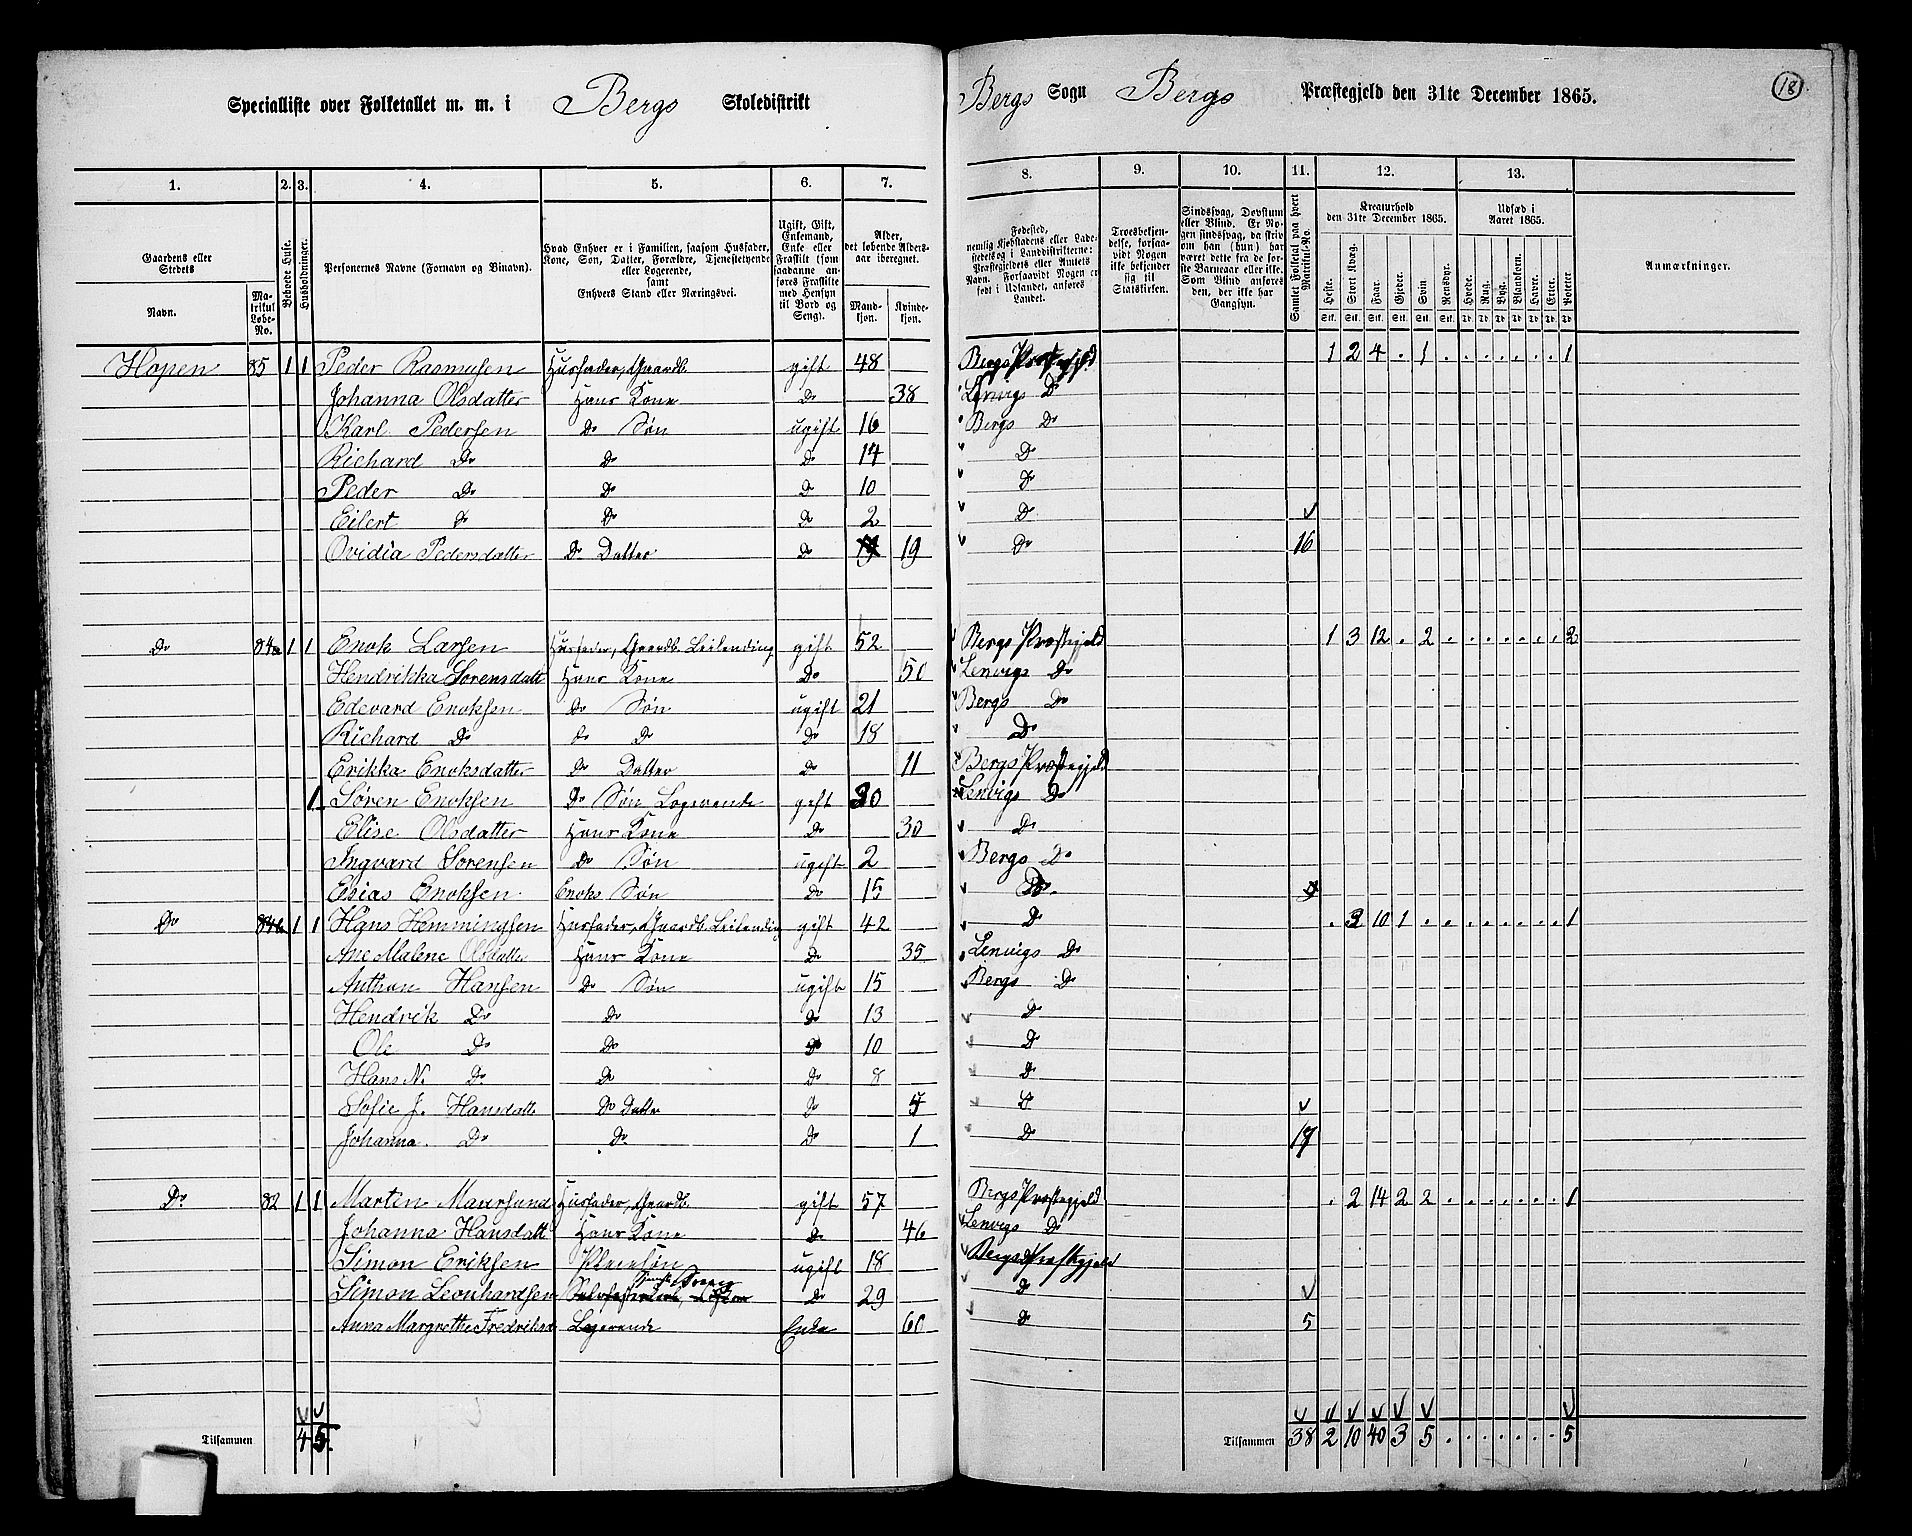 Specialliste over Folketallet m. m. i Bergs Skoledistrikt Bergs Sogn Bergs Præstegjeld den 31te December 1865. 18
1. 2. 3. 4. 5. 6. 7. 8. 9. 10. 11. 12. 13.
Gaardens eller Stedets
Navn.
Matrikul Løbe-No.
Beboede Huse.
Husholdninger.
Personernes Navne (Fornavn og Binavn).
Hvad Enhver er i Familien, saasom Husfader, Kone, Søn, Datter, Forældre, Tjenestetyende eller Logerende, samt Enhvers Stand eller Næringsvei.
Ugift, Gift, Enkemand, Enke eller Fraskilt (som saadanne anføres Fraskilte med Hensyn til Bord og Seng).
Alder, det løbende Aldersaar iberegnet.
Mandkjøn. Kvindekjøn.
Fødested, nemlig Kjøbstadens eller Ladestedets og i Landdistrikterne: Præstegjeldets eller Amtets Navn. Forsaavidt Nogen er født i Udlandet, anføres Landet.
Troesbekjendelse, forsaavidt Nogen ikke bekjender sig til Statskirken.
Sindssvag, Døvstum eller Blind. Er Nogen sindssvag, da skrives om han (hun) har været dette fra de første Barneaar eller ikke. Som Blind anføres den, der ikke har Gangsyn.
Samlet Folketal paa hvert Matrikul-No.
Kreaturhold den 31te December 1865.
Heste. Stort Kvæg. Faar. Gjeder. Svin. Rensdyr.
Stk. Stk. Stk. Stk. Stk. Stk.
Udsæd i Aaret 1865.
Hvede. Rug. Byg. Blandkorn. Havre. Erter. Poteter
Td Td Td Td Td Td Td
Anmærkninger.
Hopen 85 1 1 Peder Rasmusen Husfader, Gaardb. gift 48 Bergs Præstegjeld 1 2 4 . 1 . . . . . . . 1
Johanna Olsdatter Hans Kone Do 38 Lenvigs Do
Karl Pedersen Do Søn ugift 16 Bergs Do
Richard Do Do Do 14 Do
Peder Do Do Do 10 Do
Eilert Do Do Do 2 Do
Ovidia Pedersdatter Do Datter Do 19 Do 16
Do 84a 1 1 Enok Larsen Husfader, Gaardb. Leilending gift 52 Bergs Præstegjeld 1 3 12 . 2 . . . . . . . 2
Hendrikka Sorensdatt Hans Kone Do 50 Lenvigs Do
Edevard Enoksen Do Søn ugift 21 Bergs Do
Richard Do Do Do Do 18 Do
Erikka Enoksdatter Do Datter Do 11 Bergs Præstegjeld
1 Søren Enoksen Do Søn Logerende gift 30 Lenvigs Do
Elise Olsdatter Hans Kone Do 30 Do
Ingvard Sorensen Do Søn ugift 2 Bergs Do
Esias Enoksen Enoks Søn Do 15 Do
Do 84b 1 1 Hans Hemmingsen Husfader, Gaardb. Leilending gift 42 Do . 3 10 1 . . . . . . . . 1
Ane Malene Olsdatter Hans Kone Do 35 Lenvigs Do
Anthon Hansen Do Søn ugift 15 Bergs Do
Hendrik Do Do Do 13 Do
Ole Do Do Do 10 Do
Hans N. Do Do Do 8 Do
Sofie J. Hansdatt Do Datter Do 5 Do
Johanna. Do Do Do 1 Do 17
Do 82 1 1 Martin Maursund Husfader, Gaardb. gift 57 Bergs Præstegjeld . 2 14 2 2 . . . . . . . 1
Johanna Hansdatt Hans Kone Do 46 Lenvigs Do
Simon Eriksen Pleiesøn ugift 18 Bergs Præstegjeld
Simon Leonhardsen Do 29 Do
Anna Margrethe Fredriksd Logerende Enke 60 Do 5
Tilsammen 4 5. Tilsammen 38 2 10 40 3 5 . . . . . . . 5